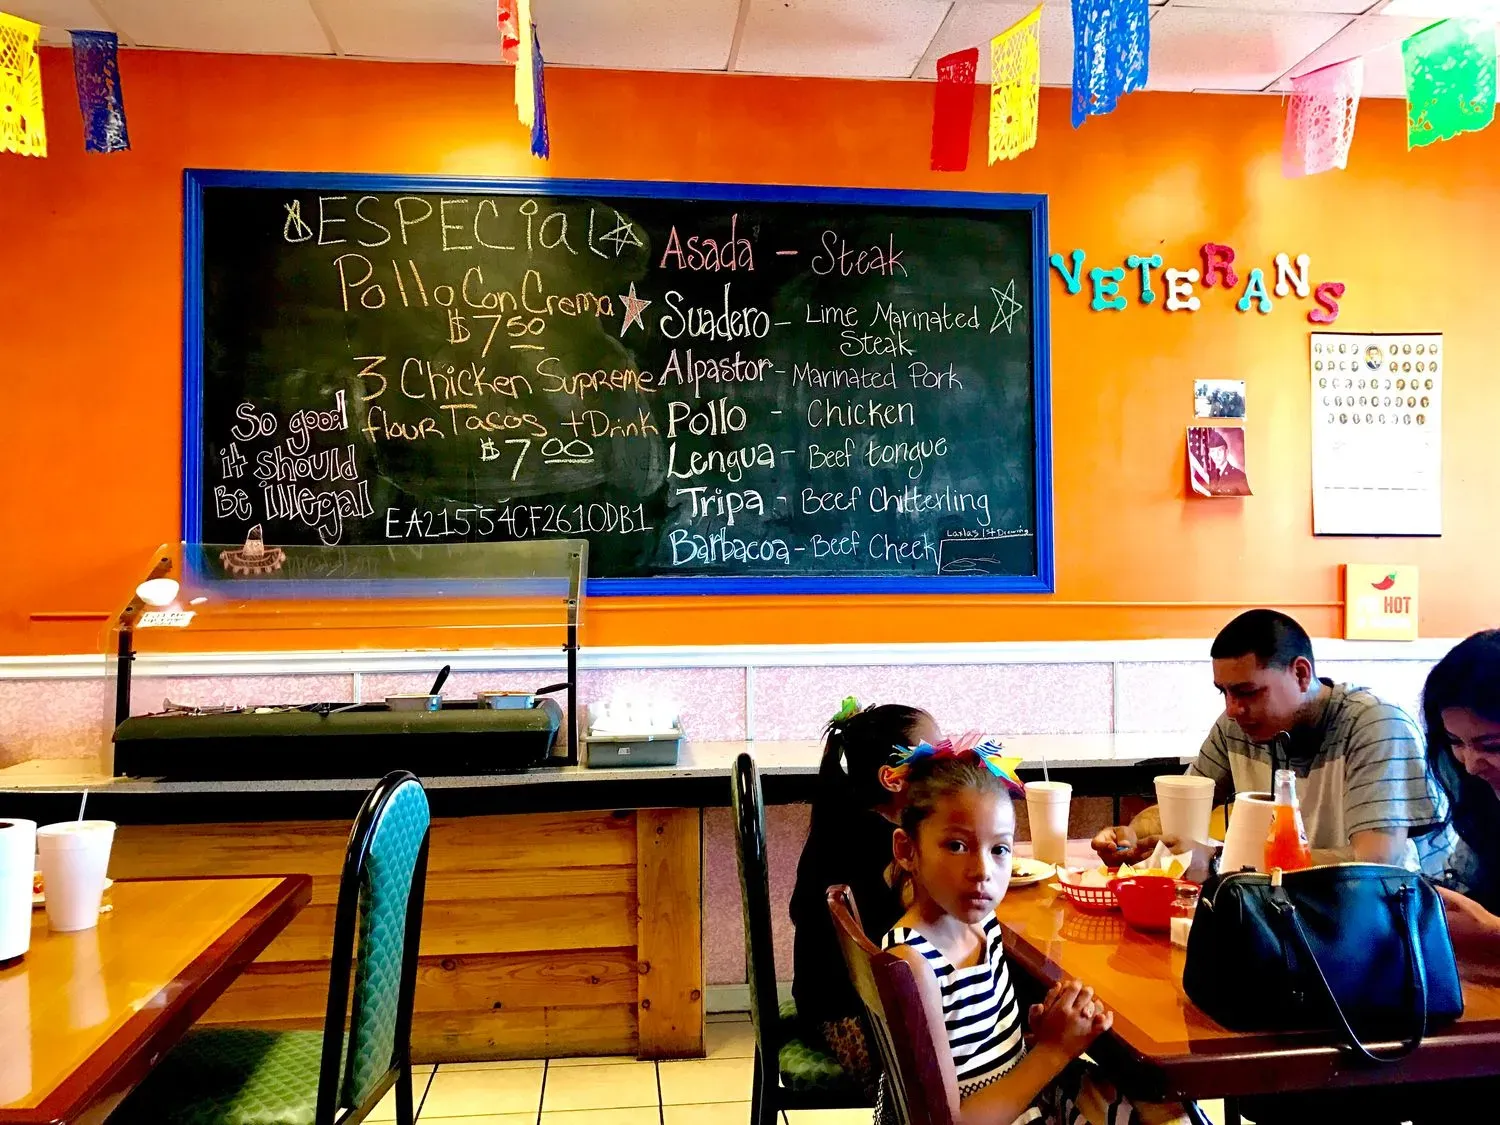 ESPECiaL
Pollo Con Crema
$7.50
3 Chicken Supreme
flour Tacos + Drink
$7.00
So good
it should
Be illegal
EA21554CF2610DB1
Asada - Steak
Suadero - Lime Marinated
Steak
Alpastor - Marinated Pork
Pollo - Chicken
Lengua - Beef tongue
Tripa - Beef Chitterling
Barbacoa - Beef Cheek
VETERANS
HOT